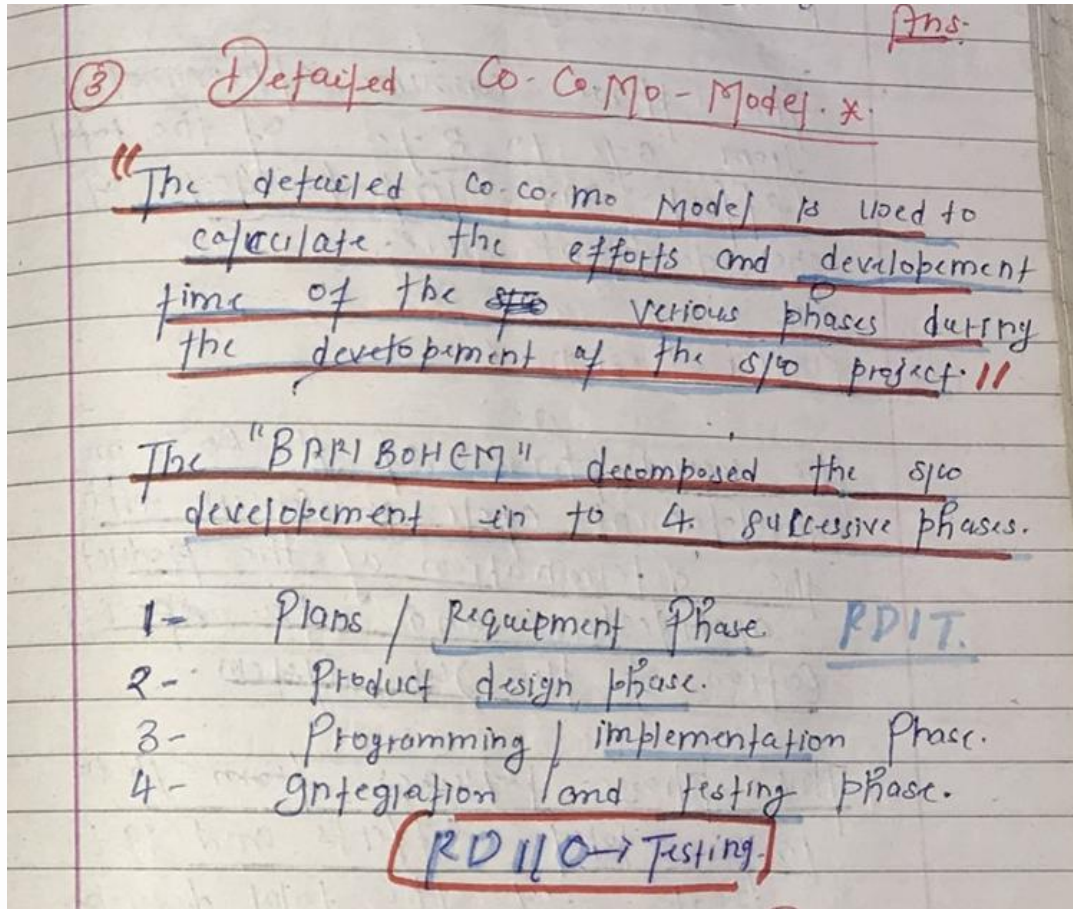 Ans.
③ Detailed Co-Co-Mo-Model. *.
"The detailed co-co-mo Model is used to
calculate the efforts and developement
time of the verious phases during
the developement of the s/w project."
The "BARI BOHEM" decomposed the s/w
developement in to 4. successive phases.
1- Plans / Requipment Phase. RDIT.
2- Product design phase.
3- Programming / implementation Phase.
4- Integration / and testing phase.